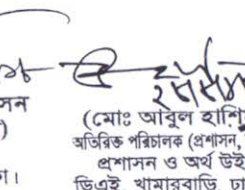 সন
)
(মোঃ আবুল হাশি
অতিরিক্ত পরিচালক (প্রশাসন,
প্রশাসন ও অর্থ উই
া।
ডিএই খামারবাড়ি